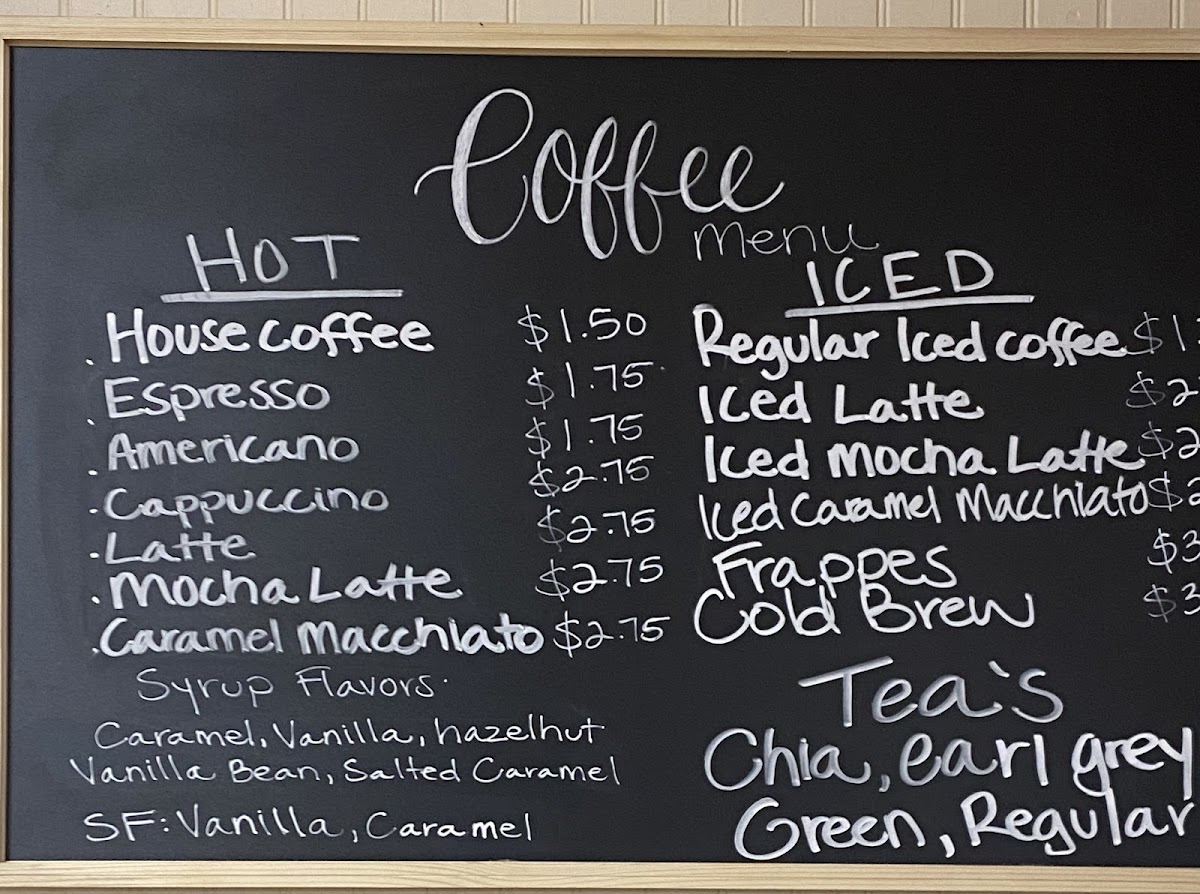 Coffee
menu
HOT
. House coffee $1.50
. Espresso $1.75
. Americano $1.75
. Cappuccino $2.75
. Latte $2.75
. Mocha Latte $2.75
. Caramel Macchiato $2.75
Syrup Flavors.
Caramel, Vanilla, hazelhut
Vanilla Bean, Salted Caramel
SF: Vanilla, Caramel
ICED
Regular Iced coffee $1.
Iced Latte $2
Iced Mocha Latte $2
Iced Caramel Macchiato $2
Frappes $3
Cold Brew $3
Tea's
Chia, earl grey
Green, Regular